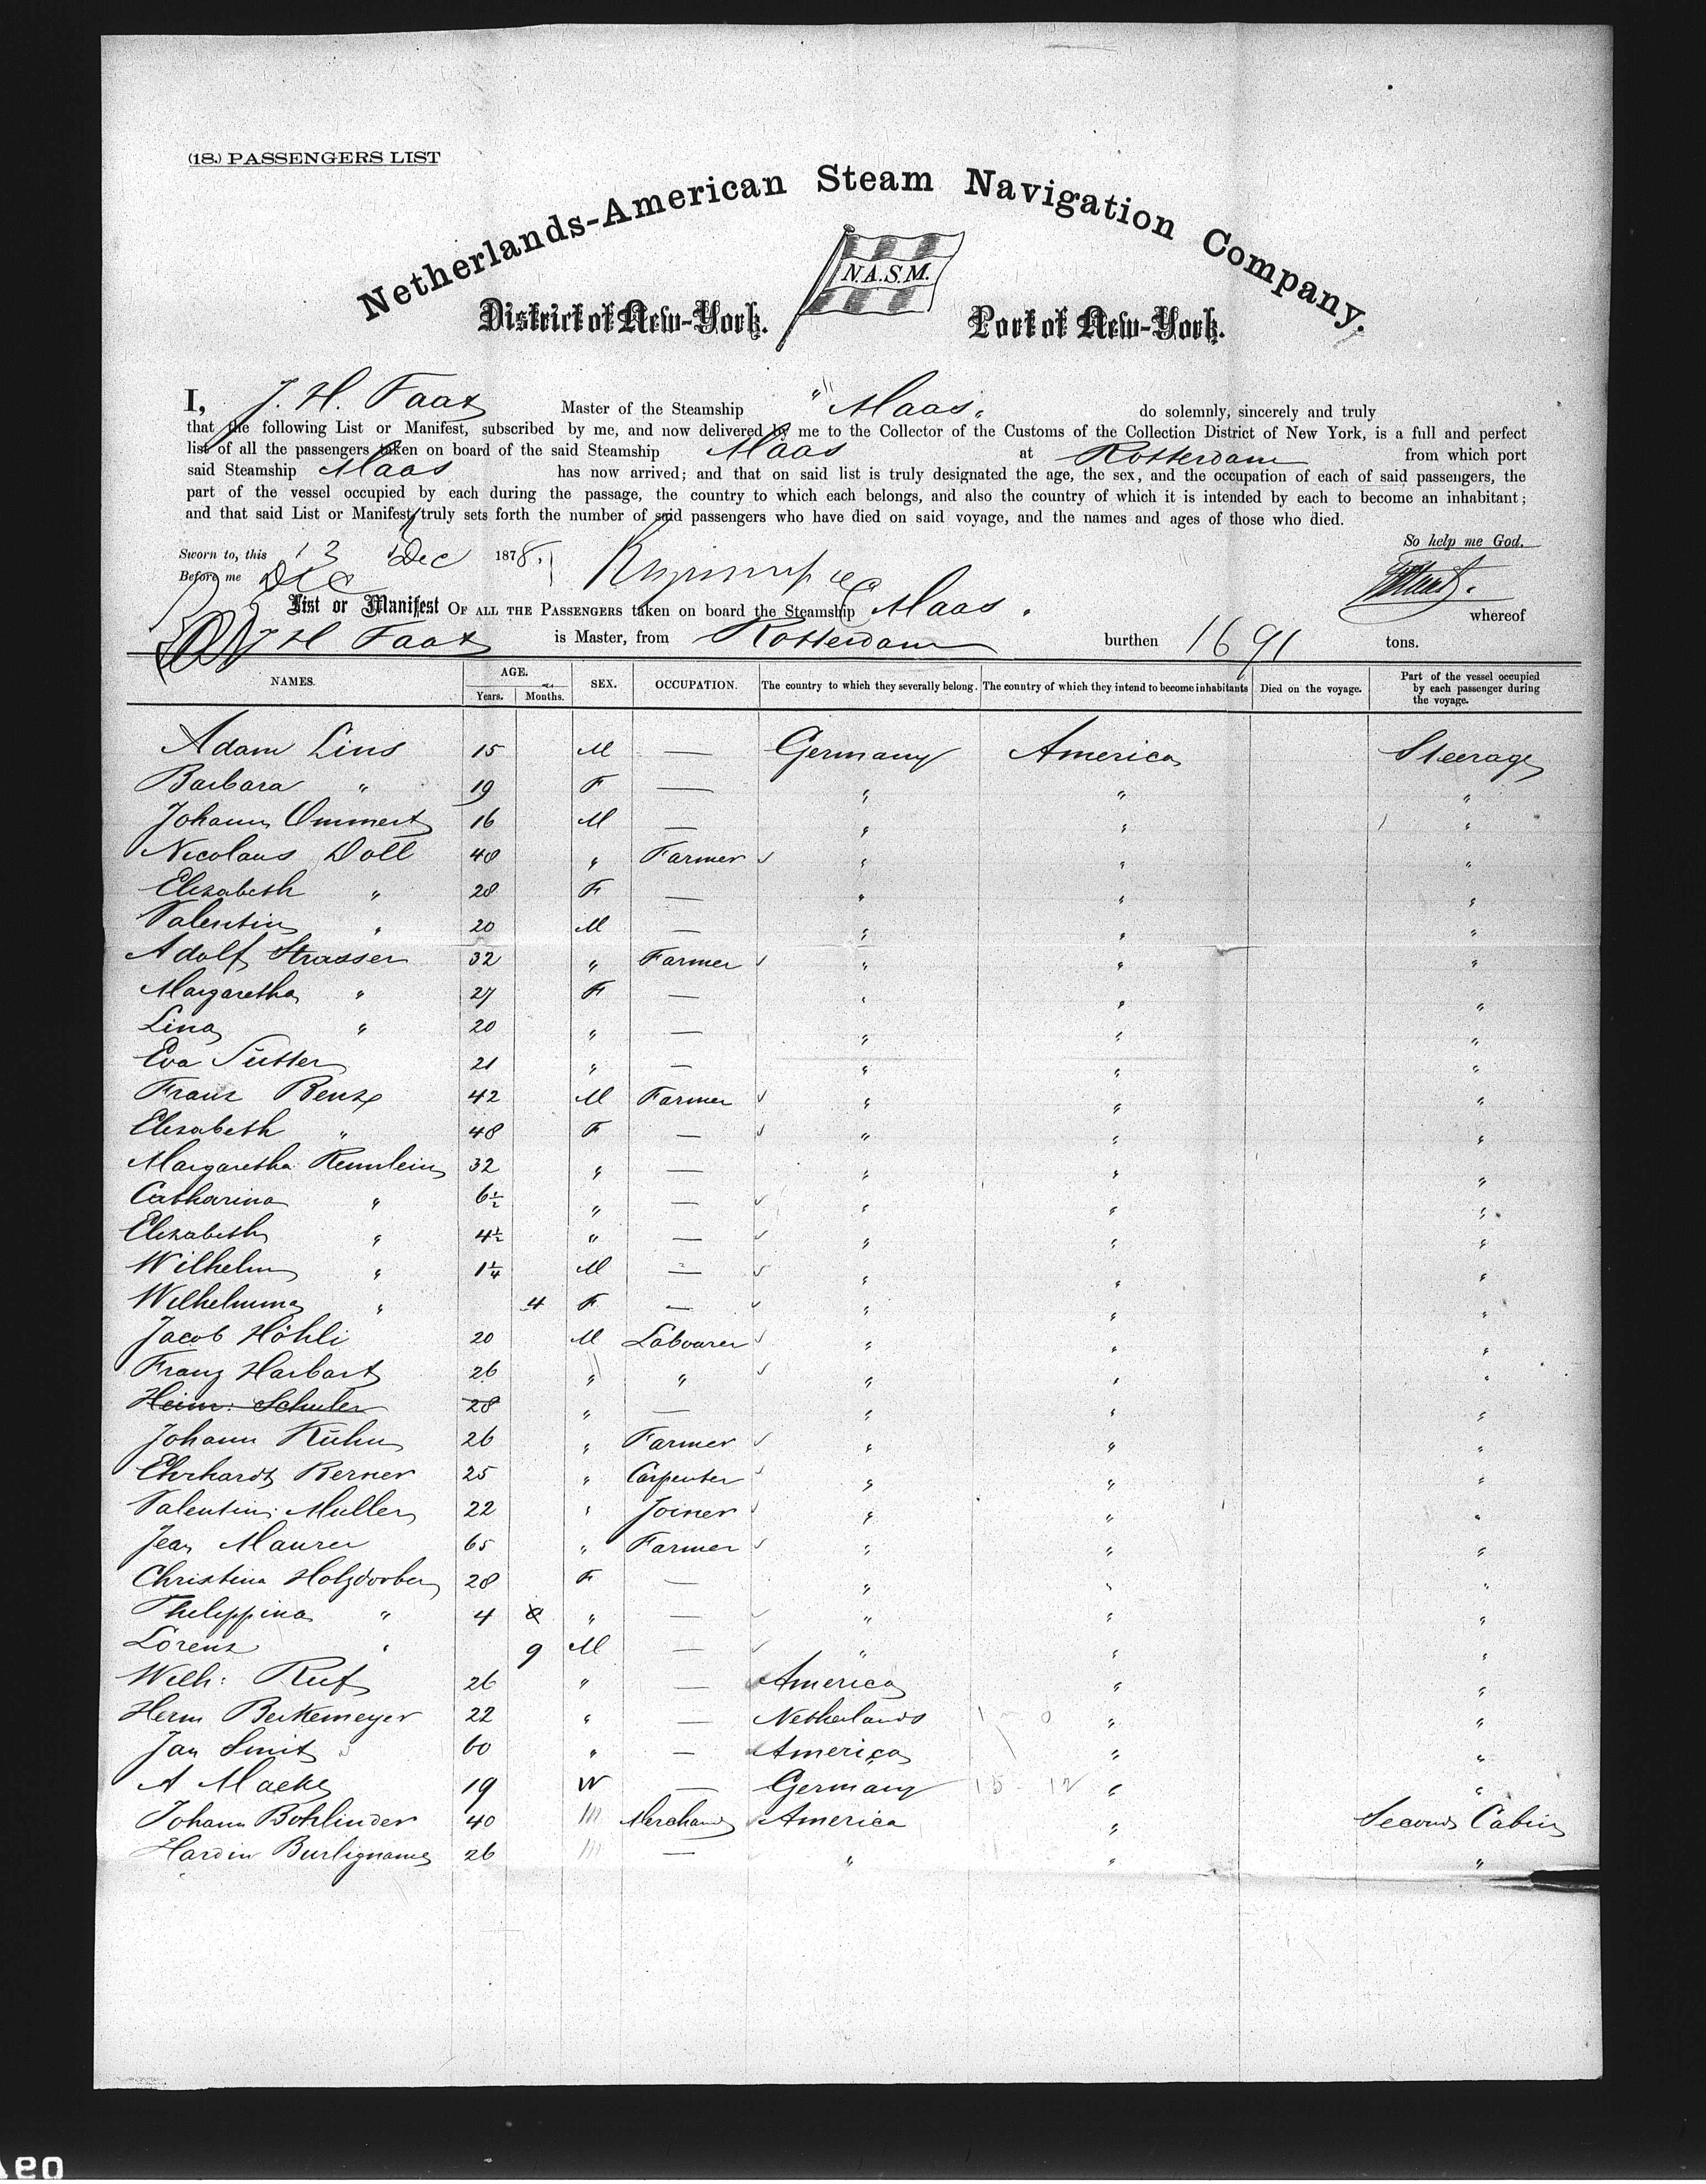 (18.) PASSENGERS LIST
Netherlands-American Steam Navigation Company.
N.A.S.M.
District of New-York. Port of New-York.
I, J. H. Faax Master of the Steamship "Maas" do solemnly, sincerely and truly
that the following List or Manifest, subscribed by me, and now delivered by me to the Collector of the Customs of the Collection District of New York, is a full and perfect
list of all the passengers taken on board of the said Steamship Maas at Rotterdam from which port
said Steamship Maas has now arrived; and that on said list is truly designated the age, the sex, and the occupation of each of said passengers, the
part of the vessel occupied by each during the passage, the country to which each belongs, and also the country of which it is intended by each to become an inhabitant;
and that said List or Manifest truly sets forth the number of said passengers who have died on said voyage, and the names and ages of those who died.
So help me God.
Sworn to, this 13 Dec 1878.
Before me
List or Manifest OF ALL THE PASSENGERS taken on board the Steamship Maas. whereof
J H Faax is Master, from Rotterdam burthen 1691 tons.
NAMES. AGE. Years. Months. SEX. OCCUPATION. The country to which they severally belong. The country of which they intend to become inhabitants Died on the voyage. Part of the vessel occupied by each passenger during the voyage.
Adam Lins 15 M — Germany America Steerage
Barbara " 19 F — " " "
Johann Ommert 16 M — " " "
Nicolaus Doll 48 " Farmer " " "
Elisabeth " 28 F — " " "
Valentin " 20 M — " " "
Adolf Strasser 32 " Farmer " " "
Margaretha " 27 F — " " "
Lina " 20 " — " " "
Eva Sutter 21 " — " " "
Franz Benz 42 M Farmer " " "
Elisabeth " 48 F — " " "
Margaretha Rennlein 32 " — " " "
Catharina " 6½ " — " " "
Elisabeth " 4½ " — " " "
Wilhelm " 1¼ M — " " "
Wilhelmina " 4 F — " " "
Jacob Höhli 20 M Labourer " " "
Franz Harbart 26 " " " " "
Heinr: Schuler 28 " — " " "
Johann Kühn 26 " Farmer " " "
Ehrhardt Berner 25 " Carpenter " " "
Valentin Muller 22 " Joiner " " "
Jean Maurer 65 " Farmer " " "
Christina Holzdorber 28 F — " " "
Philippina " 4 " — " " "
Lorenz " 9 M — " " "
Wilh: Ruf 26 " — America " "
Herm Berkemeyer 22 " — Netherlands " "
Jan Smit 60 " — America " "
A Macke 19 W — Germany " "
Johann Bohlinder 40 m Merchand America " Second Cabin
Hardin Burligname 26 m — " " "